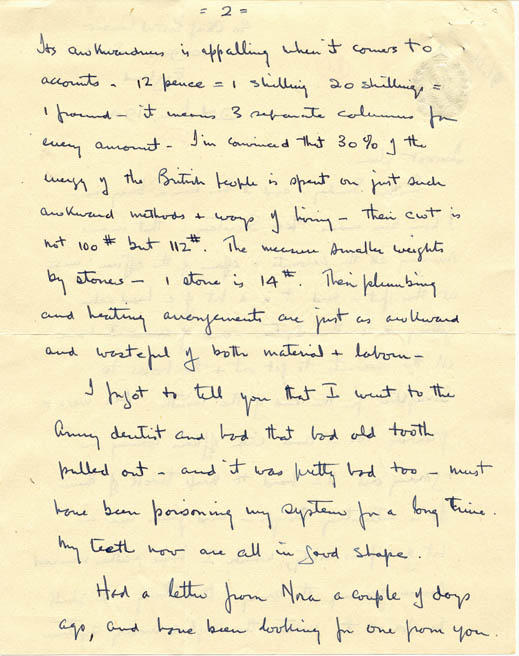 = 2 =
Its awkwardness is appalling when it comes to
accounts - 12 pence = 1 shilling 20 shillings =
1 pound - it means 3 separate columns for
every amount - I'm convinced that 30% of the
energy of the British people is spent on just such
awkward methods + ways of living - their cwt is
not 100# but 112#. The measure smaller weights
by stones - 1 stone is 14#. Their plumbing
and heating arrangements are just as awkward
and wasteful of both material + labour -
I forgot to tell you that I went to the
Army dentist and had that bad old tooth
pulled out - and it was pretty bad too - must
have been poisoning my system for a long time.
My teeth now are all in good shape.
Had a letter from Nora a couple of days
ago, and have been looking for one from you.